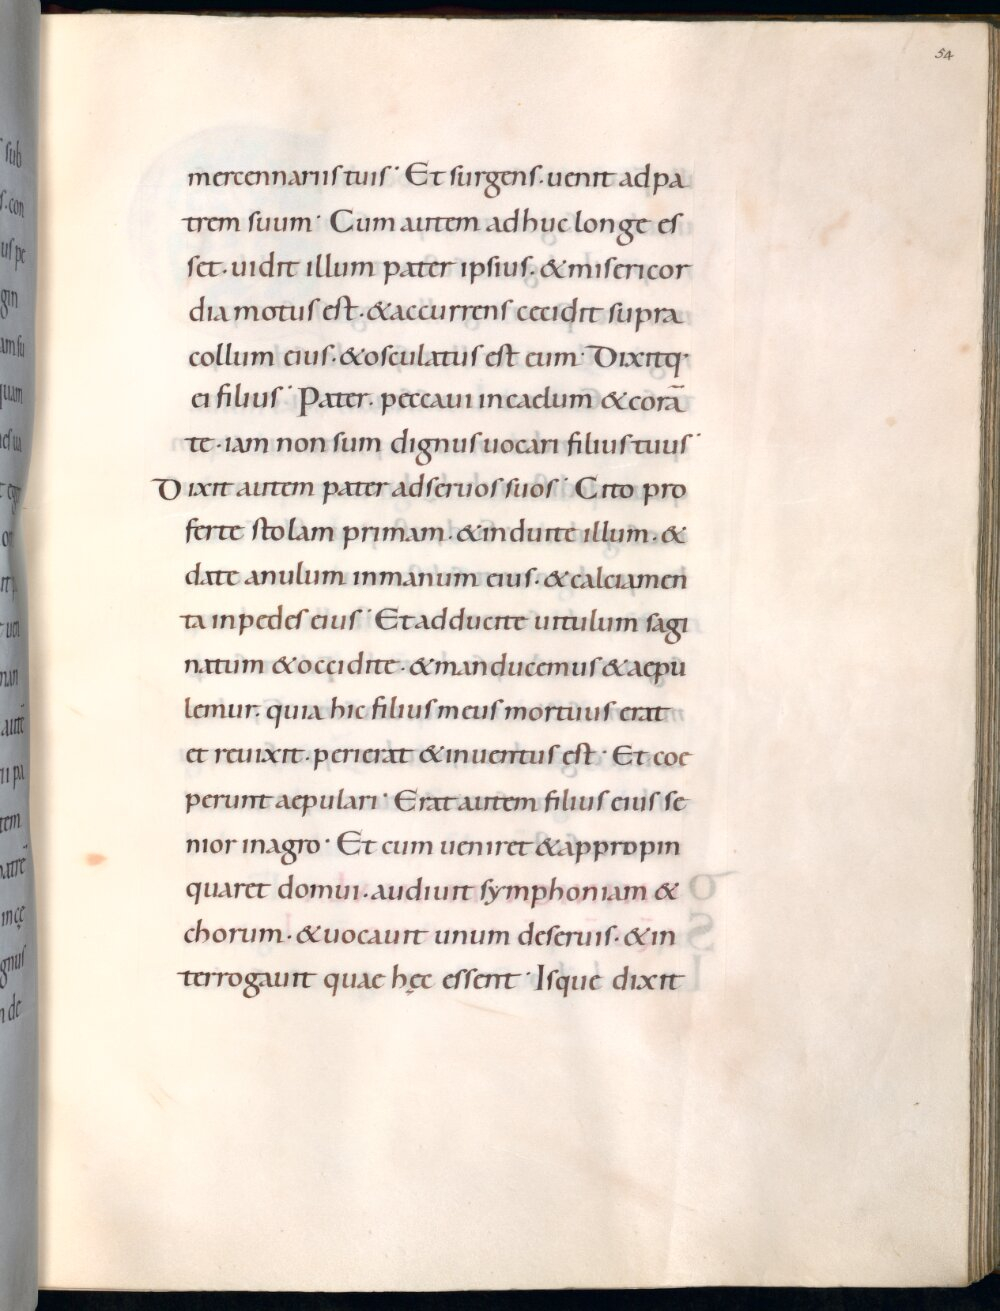 54
mercennariis tuis· Et surgens· uenit ad pa
trem suum· Cum autem adhuc longe es
set· uidit illum pater ipsius· & misericor
dia motus est· & accurrens cecidit supra
collum eius· & osculatus est eum· Dixitq·
ei filius· Pater· peccaui in caelum & corā
te· iam non sum dignus uocari filius tuus·
Dixit autem pater ad seruos suos· Cito pro
ferte stolam primam· & induite illum· &
date anulum in manum eius· & calciamen
ta in pedes eius· Et adducite uitulum sagi
natum & occidite· & manducemus & aepu
lemur· quia hic filius meus mortuus erat
et reuixit· perierat & inuentus est· Et coe
perunt aepulari· Erat autem filius eius se
nior in agro· Et cum ueniret & appropin
quaret domui· audiuit symphoniam &
chorum· & uocauit unum de seruis· & in
terrogauit quae hęc essent· Isque dixit